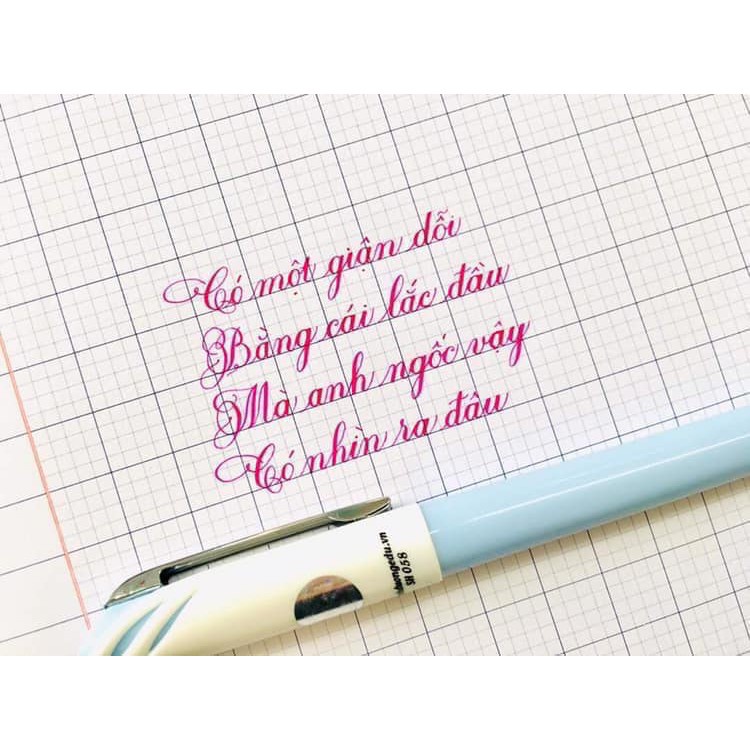 Có một giận dỗi
Bằng cái lắc đầu
Mà anh ngốc vậy
Có nhìn ra đâu
SH 058